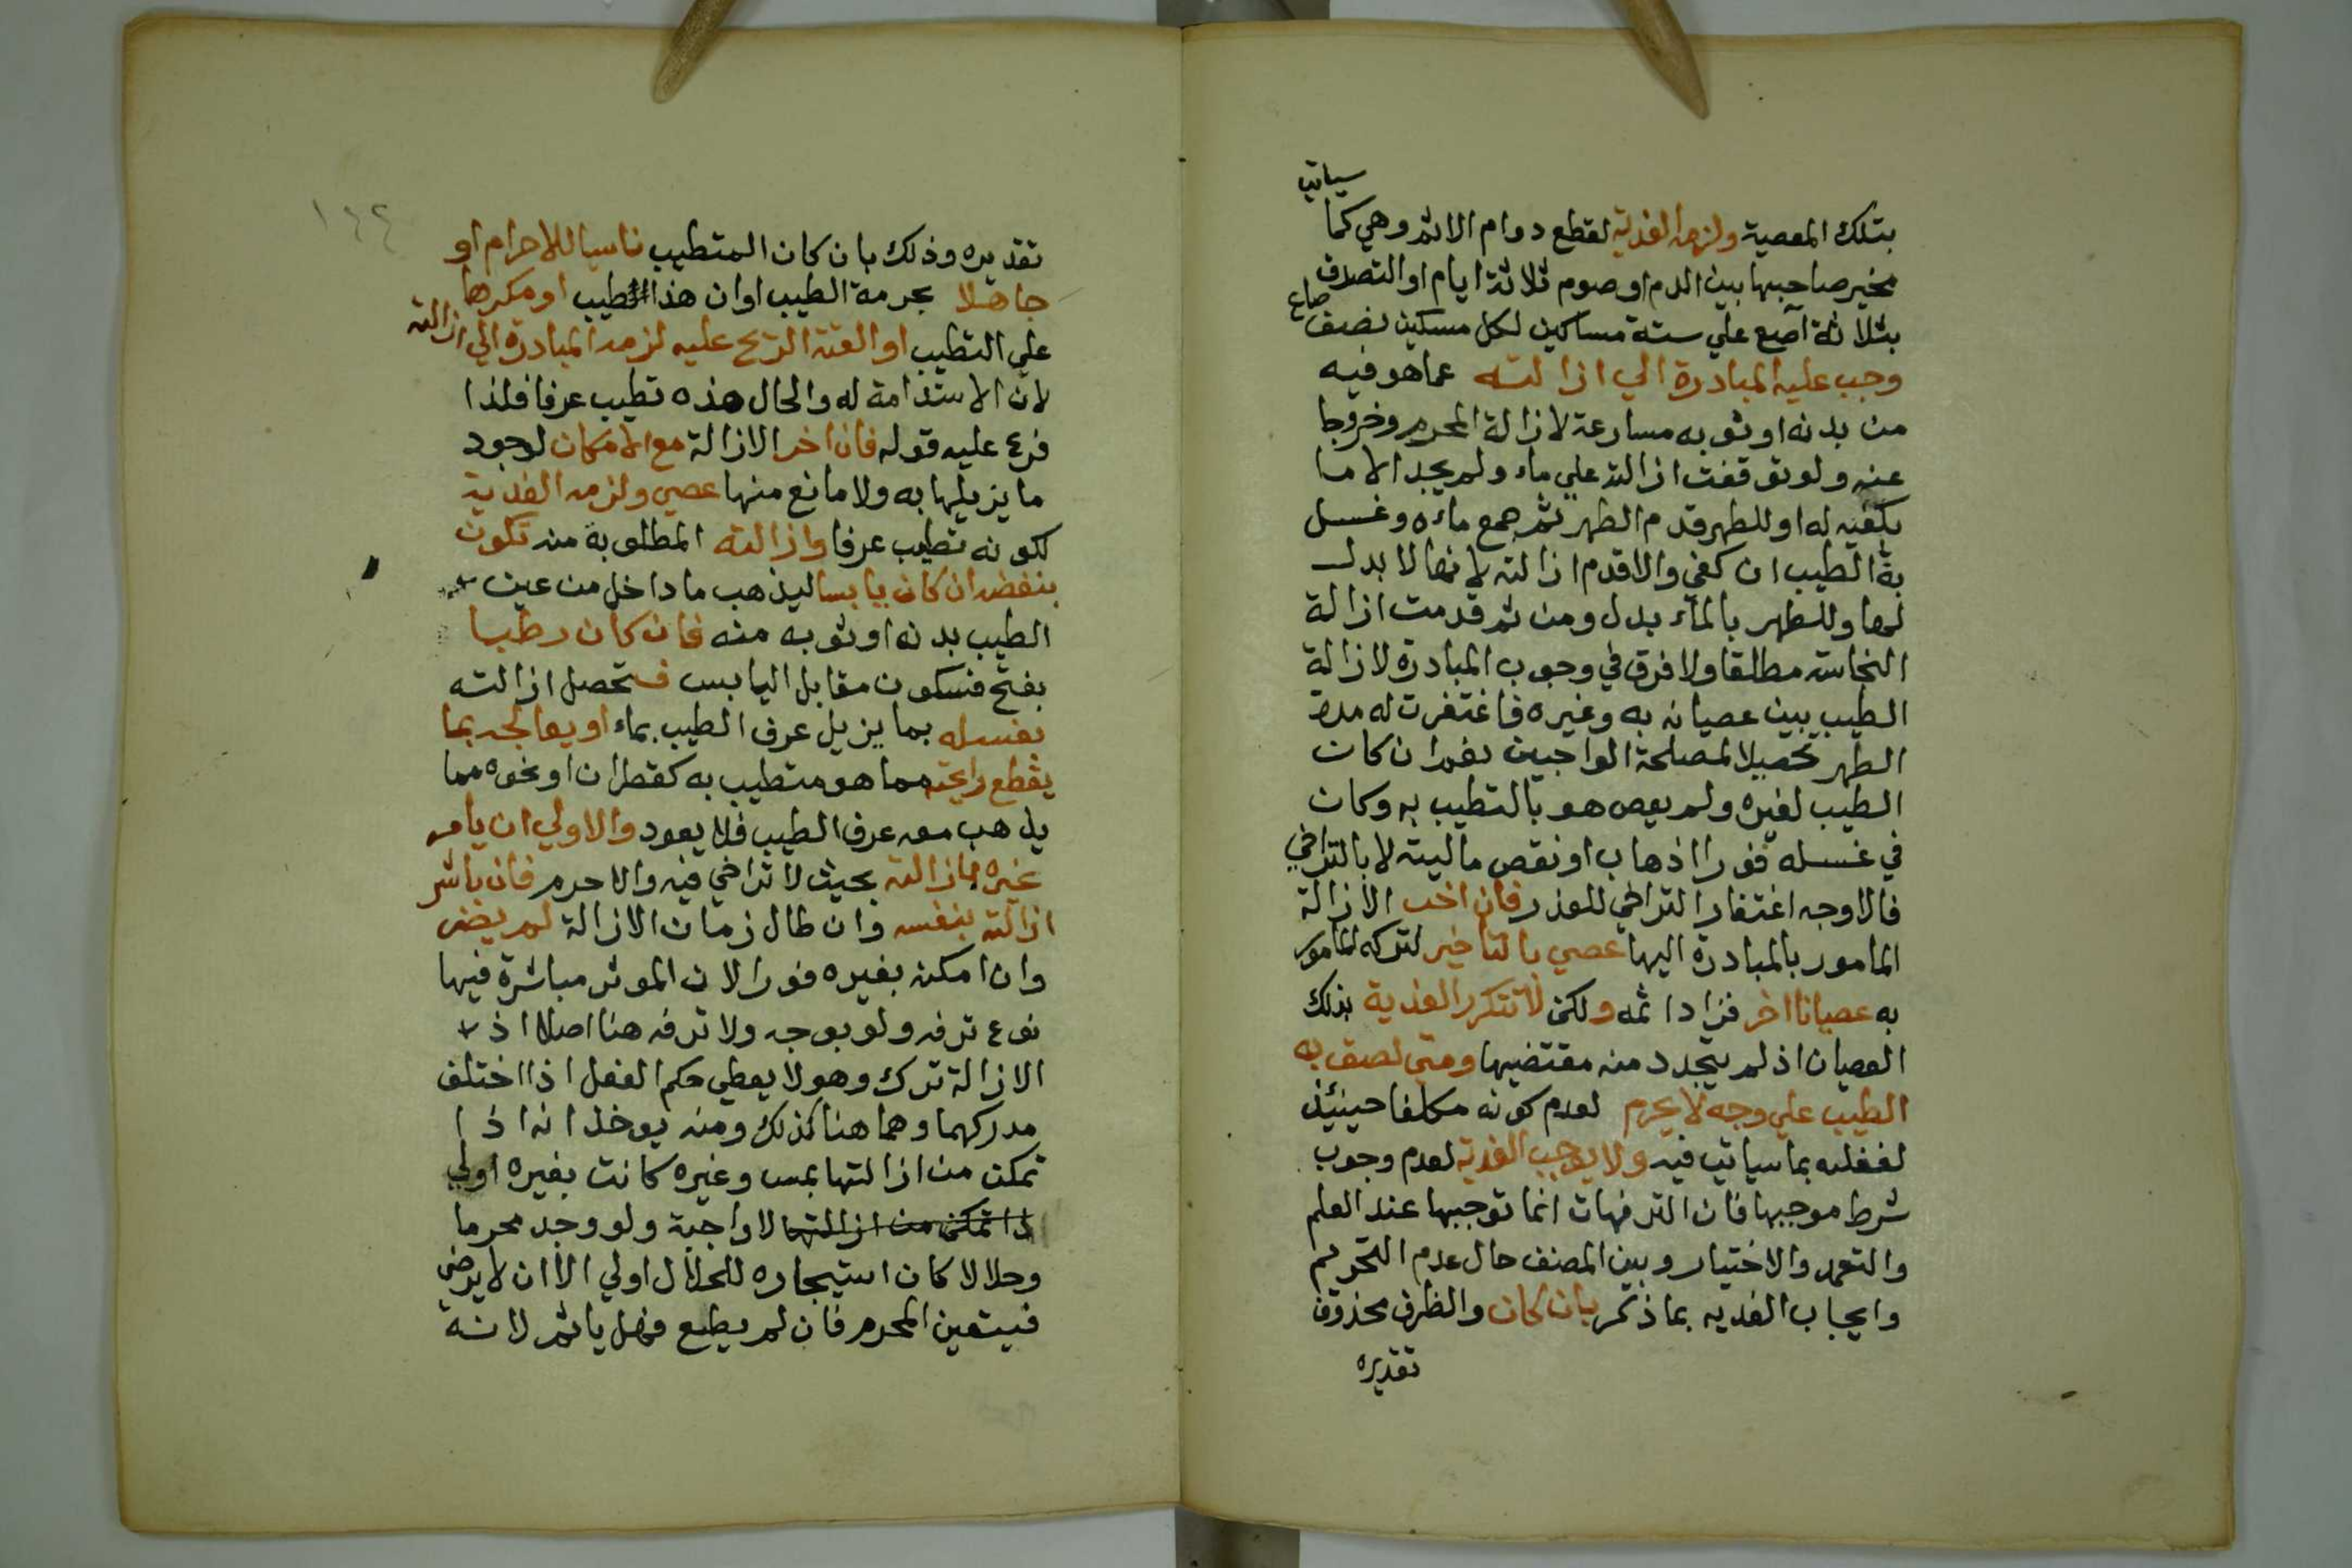 بتلك المعصية ولزمه الفدية لقطع دوام الاثم وهي كما سياتي
مخير صاحبها بين الدم او صوم ثلاثة ايام او التصدق
بثلاثة آصع علي ستة مساكين لكل مسكين نصف صاع
وجب عليه المبادرة الي ازالته عما هو فيه
من بدنه او ثوبه مسارعة لازالة المحرم وخروجا
عنه ولو توقفت ازالته علي ماء ولم يجد الا ما
يكفيه له او للطهر قدم الطهر ثم جمع ماءه وغسل
به الطيب ان كفي والا قدم ازالته لانها لا بدل
لها وللطهر بالماء بدل ومن ثم قدمت ازالة
النجاسة مطلقا ولا فرق في وجوب المبادرة لازالة
الطيب بين عصيانه به وغيره فاغتفرت له مدة
الطهر تحصيلا لمصلحة الواجبين نعم ان كان
الطيب لغيره ولم يعص هو بالتطيب به وكان
في غسله فورا اذهاب او نقص ماليته لا بالتراخي
فالاوجه اغتفار التراخي للعذر فان اخر الازالة
المامور بالمبادرة اليها عصي بالتاخير لتركه المامور
به عصيانا اخر فزاد اثمه ولكن لا تتكرر الفدية بذلك
العصيان اذ لم يتجدد منه مقتضيها ومتي لصق به
الطيب علي وجه لا يحرم لعدم كونه مكلفا حينئذ
لغفلته بما سياتي فيه ولا يوجب الفدية لعدم وجوب
شرط موجبها فان الترفهات انما توجبها عند العلم
والتعمد والاختيار وبين المصنف حال عدم التحريم
وايجاب الفديه بما ذكر بان كان والظرف محذوف
تقديره
١٤٢
تقديره وذلك بان كان المتطيب ناسيا للاحرام او
جاهلا بحرمة الطيب او ان هذا طيب او مكرها
علي التطيب او القته الريح عليه لزمه المبادرة الي ازالته
لان الاستدامة له والحال هذه تطيب عرفا فلذا
فرع عليه قوله فان اخر الازالة مع الامكان لوجود
ما يزيلها به ولا مانع منها عصي ولزمه الفدية
لكونه تطيب عرفا وازالته المطلوبة منه تكون
بنفضه ان كان يابسا ليذهب ما داخل من عين
الطيب بدنه او ثوبه منه فان كان رطبا
بفتح فسكون مقابل اليابس فتحصل ازالته
بغسله بما يزيل عرف الطيب بماء او يعالجه بما
يقطع رايحته مما هو متطيب به كقطران او نحوه مما
يذهب معه عرف الطيب فلا يعود والاولي ان يامر
غيره بازالته بحيث لا تراخي فيه والا حرم فان باشر
ازالته بنفسه وان طال زمان الازالة لم يضر
وان امكن بغيره فورا لان الموثر مباشرة فيها
نوع ترفه ولو بوجه ولا ترفه هنا اصلا اذ
الازالة ترك وهو لا يعطي حكم الفعل اذا اختلف
مدركهما وهما هنا كذلك ومنه يوخذ انه اذا
تمكن من ازالتها بمس وغيره كانت بغيره اولي
اذا تمكن من ازالتها لا واجبة ولو وجد محرما
وحلالا كان استيجاره للحلال اولي الا ان لا يرضي
فيتعين المحرم فان لم يطع فهل ياثم لانه